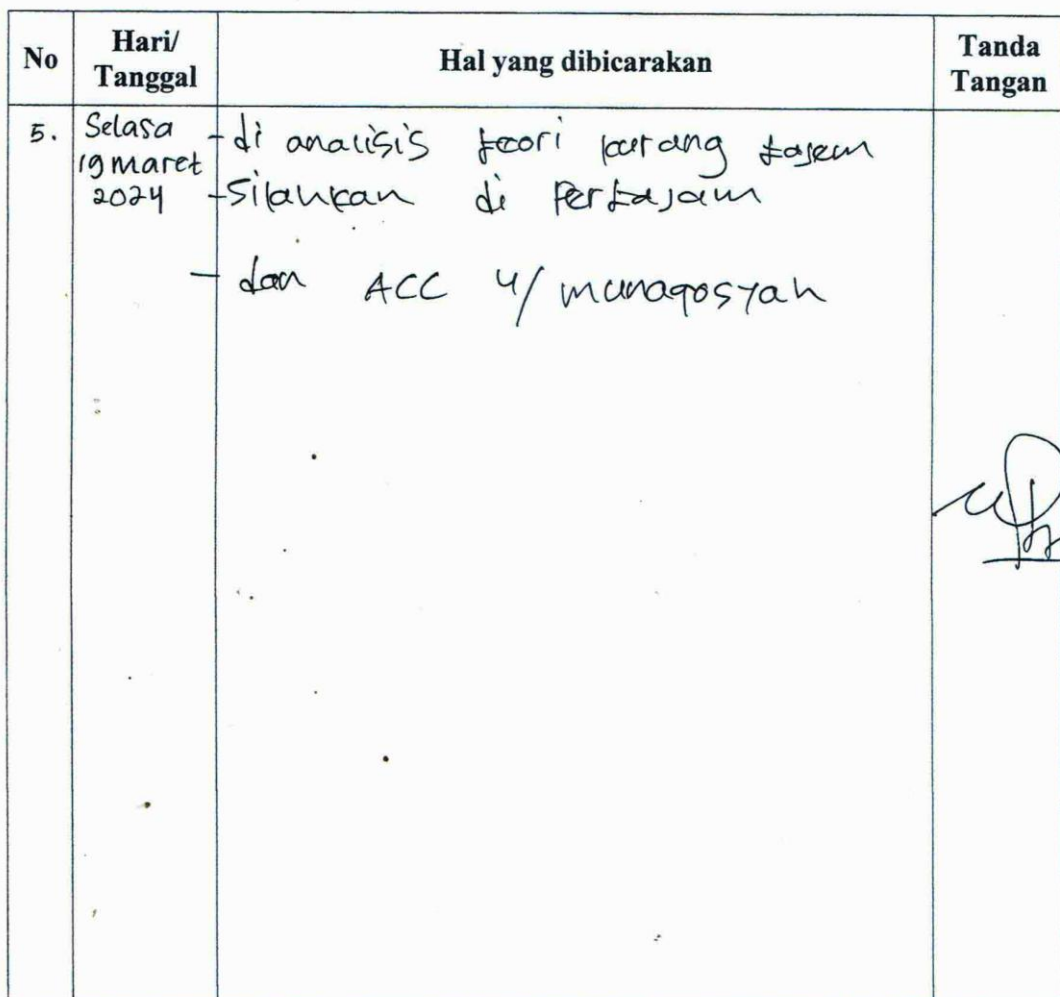 No Hari/ Tanggal Hal yang dibicarakan Tanda Tangan
5. Selasa - di analisis teori kurang tajam
19 maret - Silahkan di Pertajam
2024
- dan ACC u/ munaqosyah